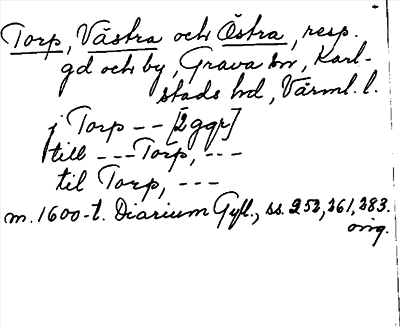 Torp, Västra och Östra, resp.
gd och by, Grava sn, Karl-
stads hd, Värml. l.
j Torp -- [2 ggr]
till --- Torp, ---
til Torp, ---
m. 1600-t. Diarium Gyll., ss. 252, 261, 283.
orig.